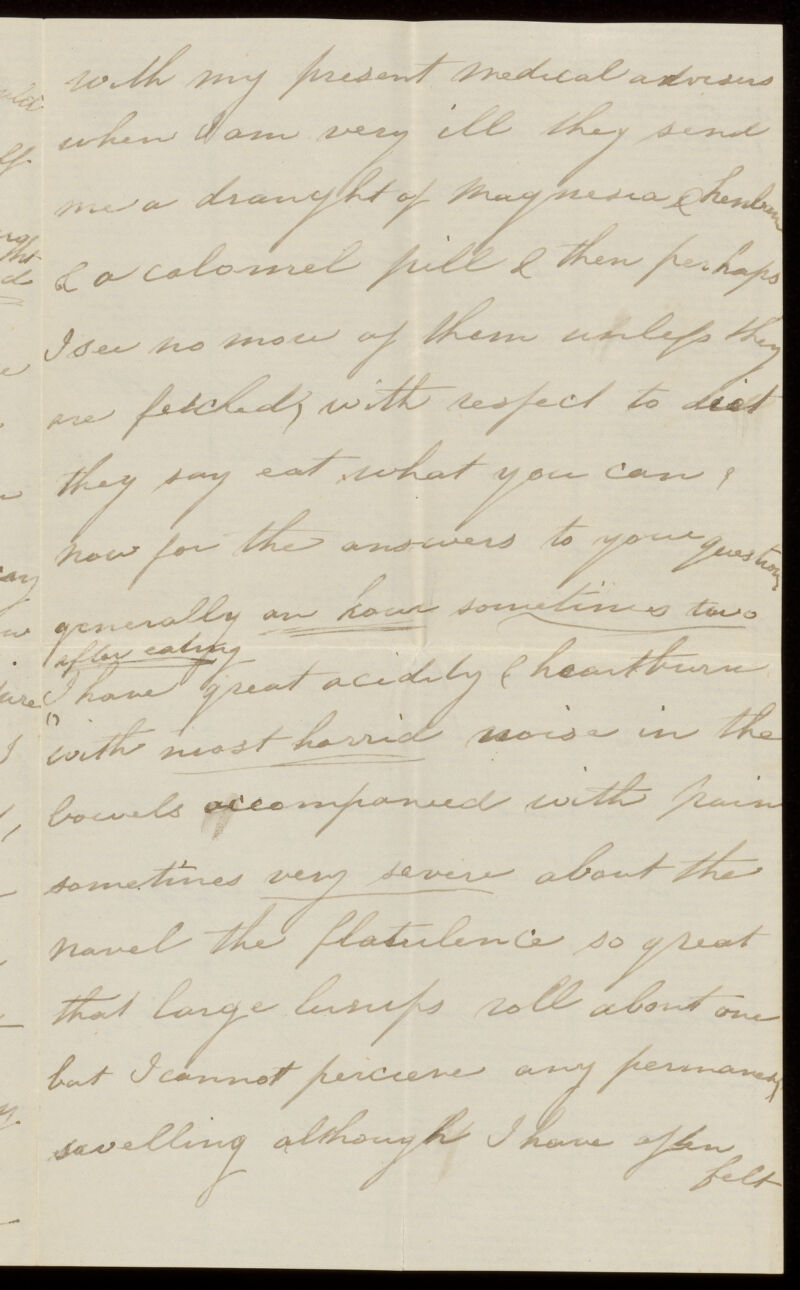 with my present medical advisers
when I am very ill they send
me a draught of Magnesia &
& a calomel pill & then perhaps
I see no more of them unless they
are fetched, with respect to diet
they say eat what you can,
now for the answers to your questions
generally an hour sometimes two
after eating
I have great acidity & heartburn
with most horrid noise in the
bowels accompanied with pain
sometimes very severe about the
navel the flatulence so great
that large lumps roll about one
but I cannot percieve any permanent
swelling although I have often
felt